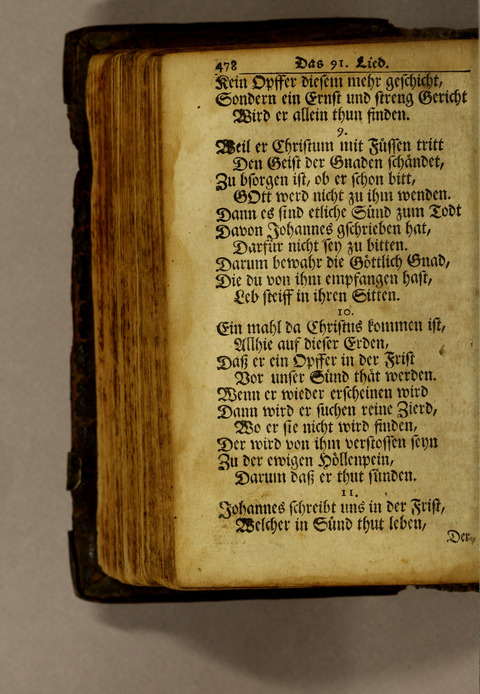 478 Das 91. Lied.
Kein Opffer diesem mehr geschicht,
Sondern ein Ernst und streng Gericht
Wird er allein thun finden.
9.
Weil er Christum mit Füssen tritt
Den Geist der Gnaden schändet,
Zu bsorgen ist, ob er schon bitt,
GOtt werd nicht zu ihm wenden.
Dann es sind etliche Sünd zum Todt
Davon Johannes gschrieben hat,
Darfür nicht sey zu bitten.
Darum bewahr die Göttlich Gnad,
Die du von ihm empfangen hast,
Leb steiff in ihren Sitten.
10.
Ein mahl da Christus kommen ist,
Allhie auf dieser Erden,
Daß er ein Opffer in der Frist
Vor unser Sünd thät werden.
Wenn er wieder erscheinen wird
Dann wird er suchen reine Zierd,
Wo er sie nicht wird finden,
Der wird von ihm verstossen seyn
Zu der ewigen Höllenpein,
Darum daß er thut sünden.
11.
Johannes schreibt uns in der Frist,
Welcher in Sünd thut leben,
Der